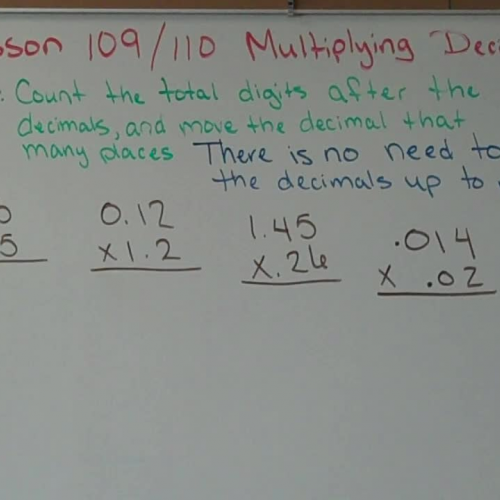 sson 109/110 Multiplying Deci
: Count the total digits after the
decimals, and move the decimal that
many places There is no need to
the decimals up to
0
5
0.12
x1.2
1.45
x.26
.014
x .02